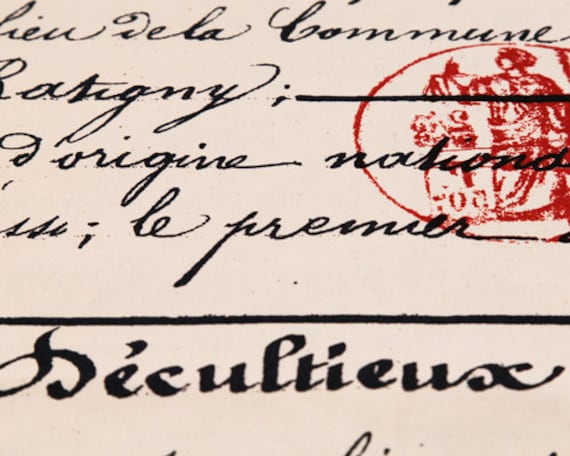 lieu de la Commune
Ratigny;
d'origine nationa
sse; le premier
Décultieux